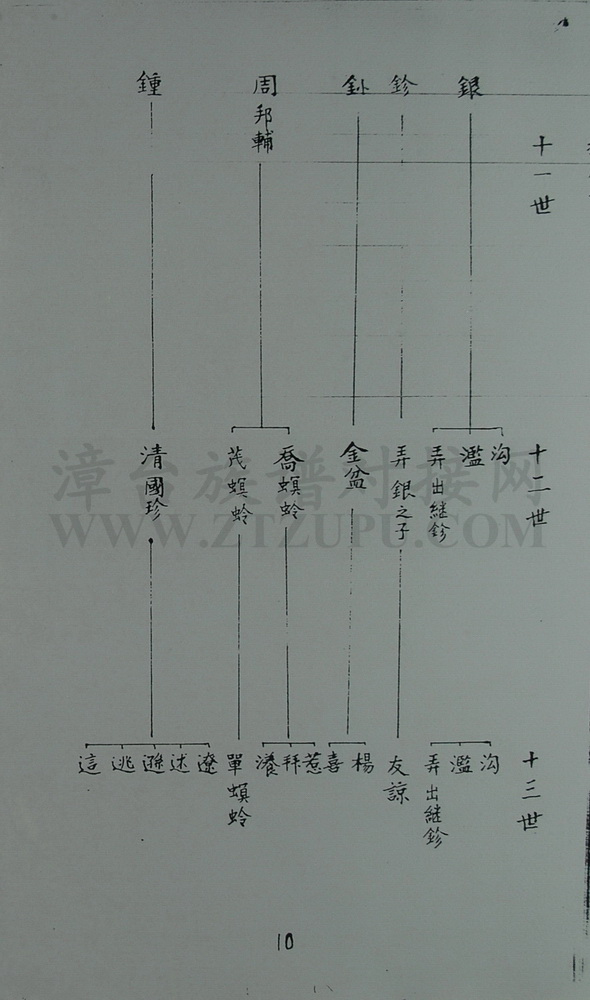 十一世
銀
鉁
釙
周邦輔
鍾
十二世
沟
濫
弄出継鉁
弄銀之子
金盆
喬螟蛉
茂螟蛉
清國珍
十三世
沟
濫
弄出継鉁
友諒
楊
喜
惹
拜
瀁
單螟蛉
遼
述
遜
逃
這
10
漳台族谱对接网
WWW.ZTZUPU.COM